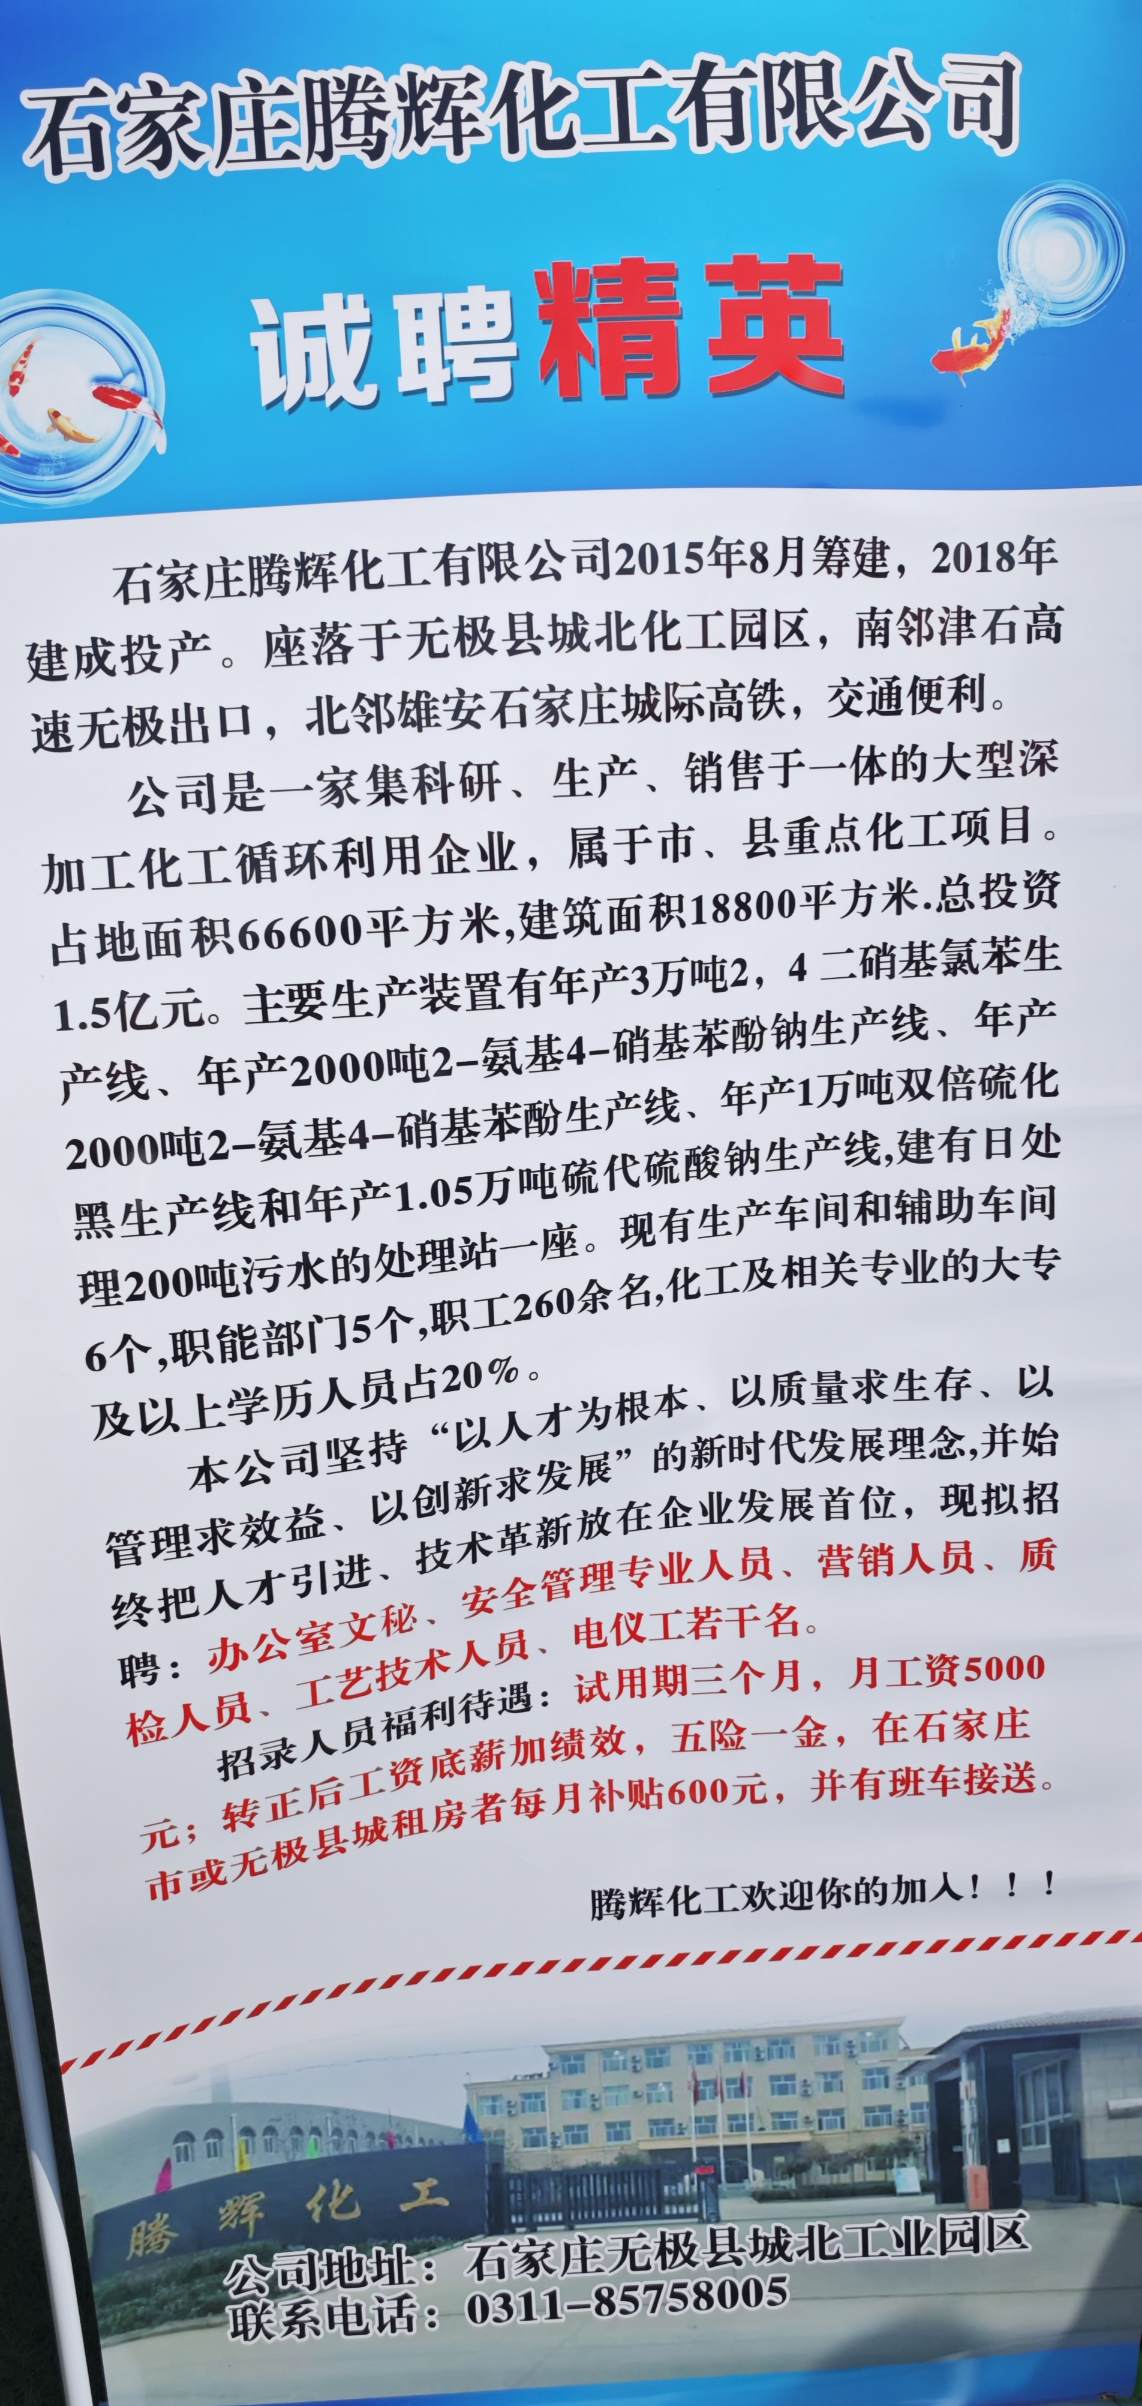 石家庄腾辉化工有限公司
诚聘精英
石家庄腾辉化工有限公司2015年8月筹建，2018年
建成投产。座落于无极县城北化工园区，南邻津石高
速无极出口，北邻雄安石家庄城际高铁，交通便利。
公司是一家集科研、生产、销售于一体的大型深
加工化工循环利用企业，属于市、县重点化工项目。
占地面积66600平方米,建筑面积18800平方米.总投资
1.5亿元。主要生产装置有年产3万吨2，4 二硝基氯苯生
产线、年产2000吨2-氨基4-硝基苯酚钠生产线、年产
2000吨2-氨基4-硝基苯酚生产线、年产1万吨双倍硫化
黑生产线和年产1.05万吨硫代硫酸钠生产线,建有日处
理200吨污水的处理站一座。现有生产车间和辅助车间
6个,职能部门5个,职工260余名,化工及相关专业的大专
及以上学历人员占20%。
本公司坚持“以人才为根本、以质量求生存、以
管理求效益、以创新求发展”的新时代发展理念,并始
终把人才引进、技术革新放在企业发展首位，现拟招
聘：办公室文秘、安全管理专业人员、营销人员、质
检人员、工艺技术人员、电仪工若干名。
招录人员福利待遇：试用期三个月，月工资5000
元；转正后工资底薪加绩效，五险一金，在石家庄
市或无极县城租房者每月补贴600元，并有班车接送。
腾辉化工欢迎你的加入！！！
腾辉化工
公司地址：石家庄无极县城北工业园区
联系电话：0311-85758005